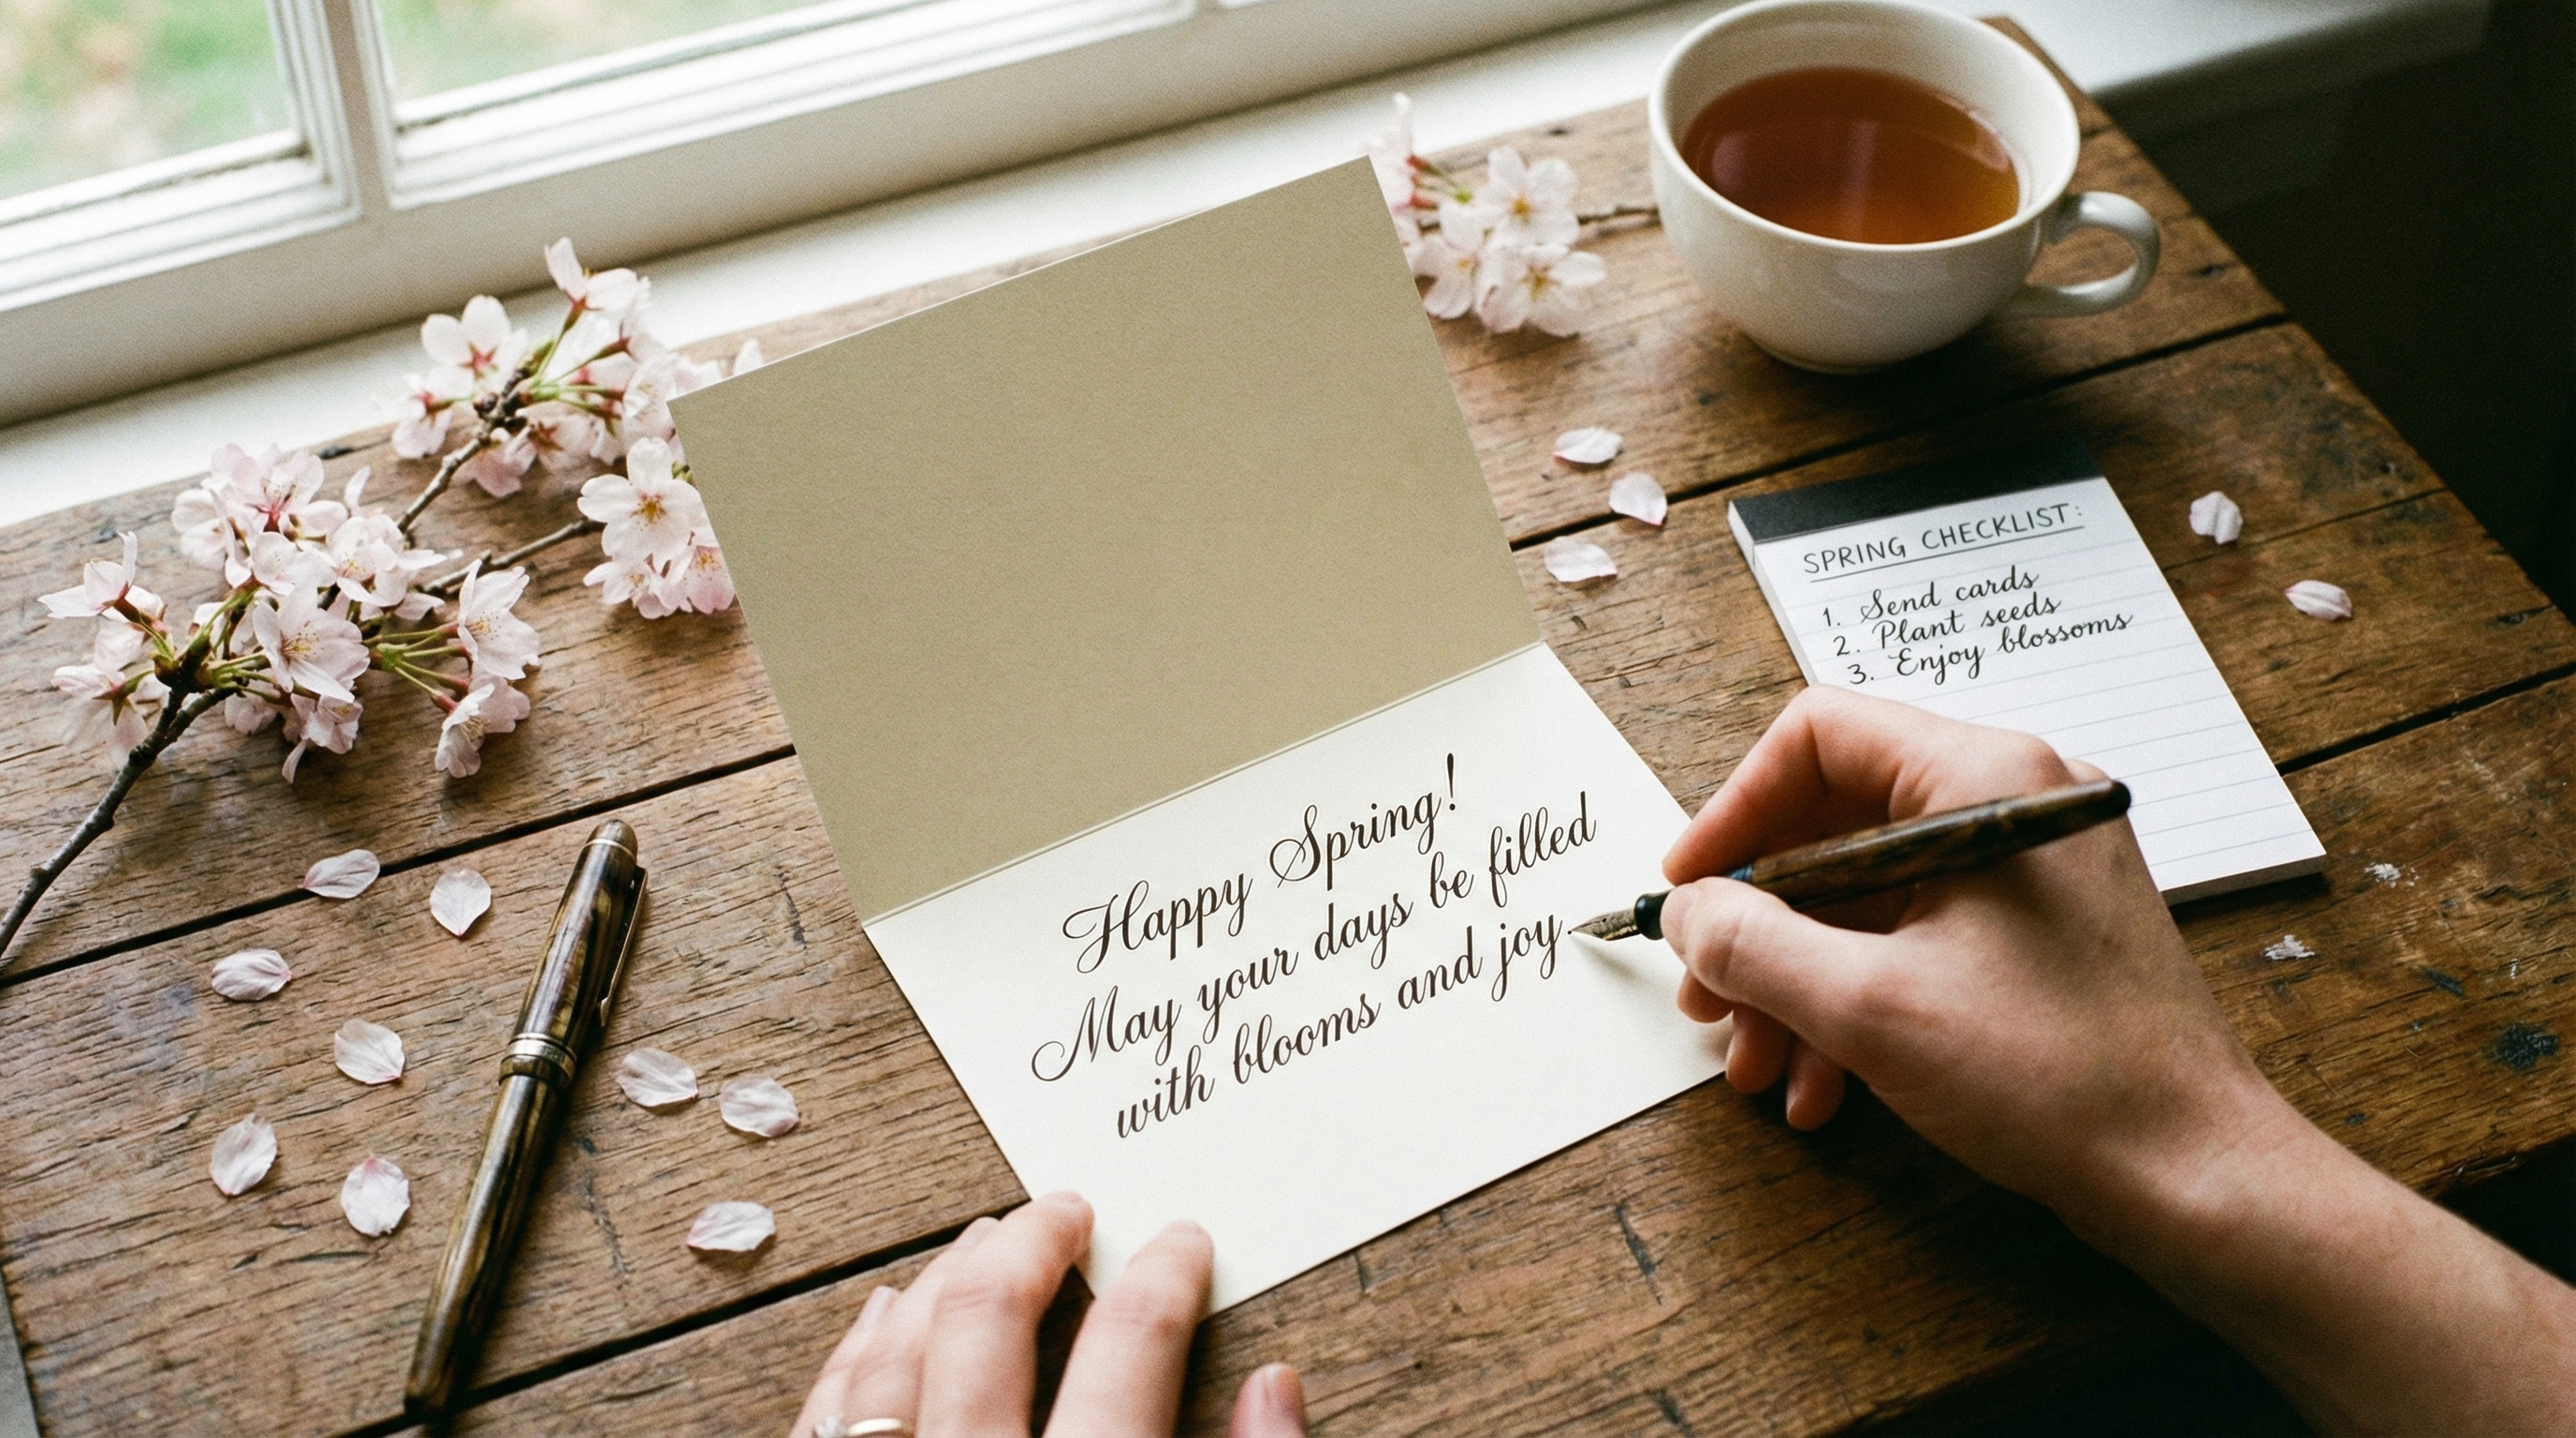 Happy Spring!
May your days be filled
with blooms and joy.
SPRING CHECKLIST:
1. Send cards
2. Plant seeds
3. Enjoy blossoms